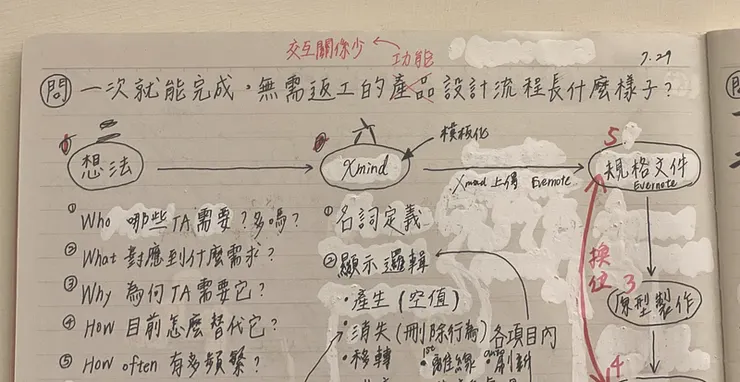 交互關係少 ← 功能
7.29
問 一次就能完成,無需返工的產品設計流程長什麼樣子?
二 六 模板化 5
想法 Xmind 規格文件
Xmind 上傳 Evernote Evernote
① Who 哪些TA需要?多嗎? ① 名詞定義
② What 對應到什麼需求? ② 顯示邏輯
換位 3
③ Why 為何TA需要它? ・產生(空值) 原型製作
④ How 目前怎麼替代它? ・消失(刪除行為)各項目內
⑤ How often 有多頻繁? ・移轉 ・離線 ・刷新
4